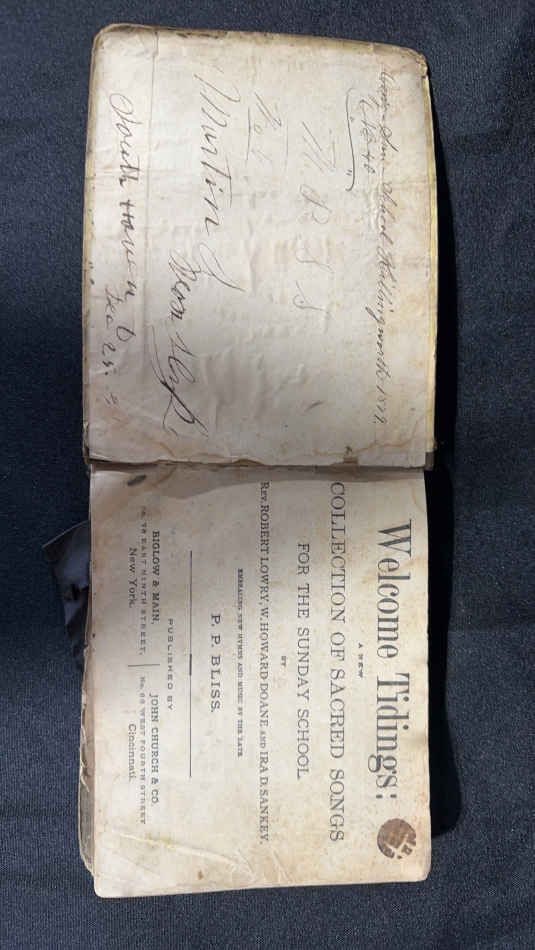 School Killingworth 1877.
M B S S
Martin
South Haven
Dec 25
Welcome Tidings:
A NEW
COLLECTION OF SACRED SONGS
FOR THE SUNDAY SCHOOL
BY
REV. ROBERT LOWRY, W. HOWARD DOANE AND IRA D. SANKEY.
EMBRACING NEW HYMNS AND MUSIC BY THE LATE
P. P. BLISS.
PUBLISHED BY
BIGLOW & MAIN,
No. 76 EAST NINTH STREET,
New York.
JOHN CHURCH & CO.
No. 66 WEST FOURTH STREET
Cincinnati.